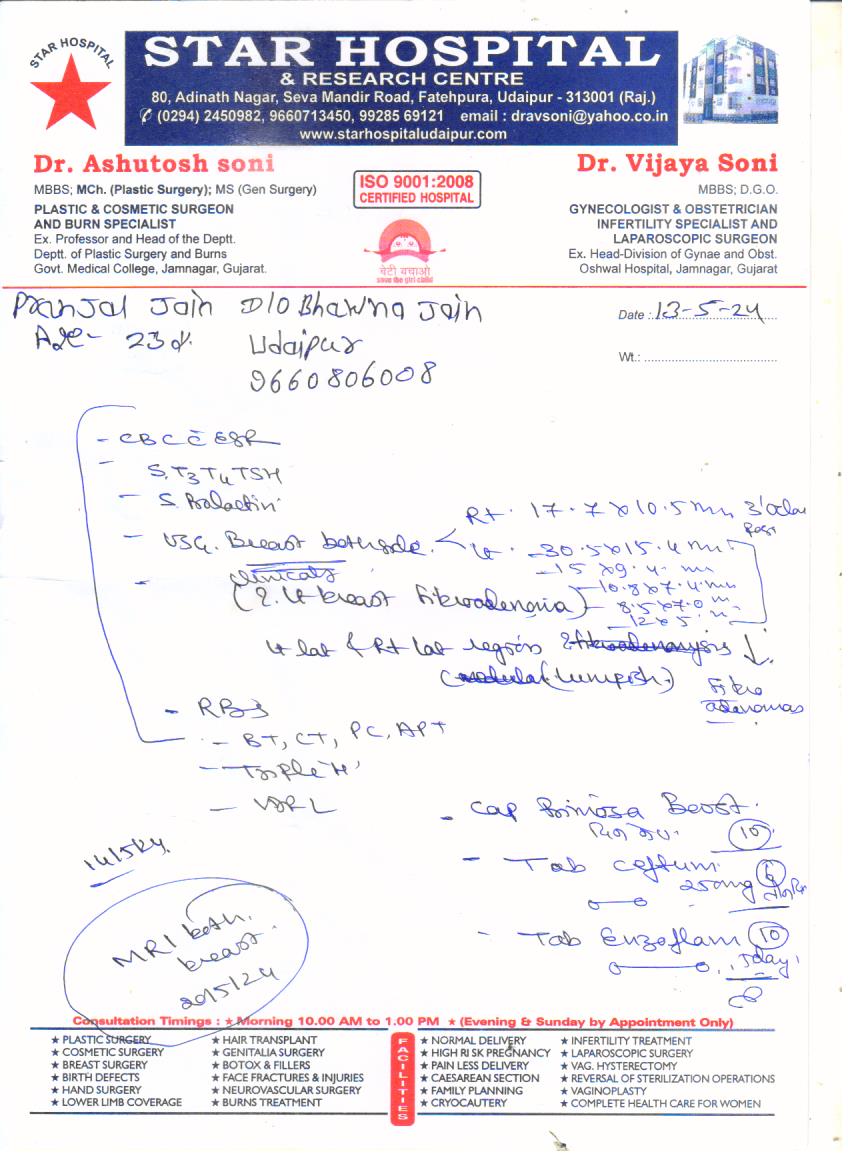 STAR HOSPITAL
STAR HOSPITAL
& RESEARCH CENTRE
80, Adinath Nagar, Seva Mandir Road, Fatehpura, Udaipur - 313001 (Raj.)
(0294) 2450982, 9660713450, 99285 69121 email : dravsoni@yahoo.co.in
www.starhospitaludaipur.com
Dr. Ashutosh soni
MBBS; MCh. (Plastic Surgery); MS (Gen Surgery)
PLASTIC & COSMETIC SURGEON
AND BURN SPECIALIST
Ex. Professor and Head of the Deptt.
Deptt. of Plastic Surgery and Burns
Govt. Medical College, Jamnagar, Gujarat.
ISO 9001:2008
CERTIFIED HOSPITAL
बेटी बचाओ
save the girl child
Dr. Vijaya Soni
MBBS; D.G.O.
GYNECOLOGIST & OBSTETRICIAN
INFERTILITY SPECIALIST AND
LAPAROSCOPIC SURGEON
Ex. Head-Division of Gynae and Obst.
Oshwal Hospital, Jamnagar, Gujarat
Pranjal Jain D/O Bhawna Jain
Date : 13-5-24
Age - 23 y. Udaipur
Wt.:
9660806008
- CBC C̄ ESR
- S. T3 T4 TSH
- S. Prolactin
- USG. Breast both side
Rt. 17.7 x 10.5 mm 3'oclock
Lt. - 30.5 x 15.4 mm
- 15 x 9.4 mm
clinicaly
- 10.8 x 7.4 mm
(?. Lt breast Fibroadenoma)
- 8.5 x 7.0 m
- 12 x 5
Lt lat & Rt lat region fibroadenomysis ↓
(nodular (lumpish)
Fibro
adenomas
- RBS
- BT, CT, PC, APT
- Triple H
- VDRL
- Cap Bimosa Boost
10
14/5/24.
- Tab Ceftum
250mg 6
- Tab Enzoflam 10
5 day
MRI both
breast
20/5/24
Consultation Timings : ★ Morning 10.00 AM to 1.00 PM ★ (Evening & Sunday by Appointment Only)
★ PLASTIC SURGERY
★ COSMETIC SURGERY
★ BREAST SURGERY
★ BIRTH DEFECTS
★ HAND SURGERY
★ LOWER LIMB COVERAGE
★ HAIR TRANSPLANT
★ GENITALIA SURGERY
★ BOTOX & FILLERS
★ FACE FRACTURES & INJURIES
★ NEUROVASCULAR SURGERY
★ BURNS TREATMENT
FACILITIES
★ NORMAL DELIVERY
★ HIGH RISK PREGNANCY
★ PAIN LESS DELIVERY
★ CAESAREAN SECTION
★ FAMILY PLANNING
★ CRYOCAUTERY
★ INFERTILITY TREATMENT
★ LAPAROSCOPIC SURGERY
★ VAG. HYSTERECTOMY
★ REVERSAL OF STERILIZATION OPERATIONS
★ VAGINOPLASTY
★ COMPLETE HEALTH CARE FOR WOMEN